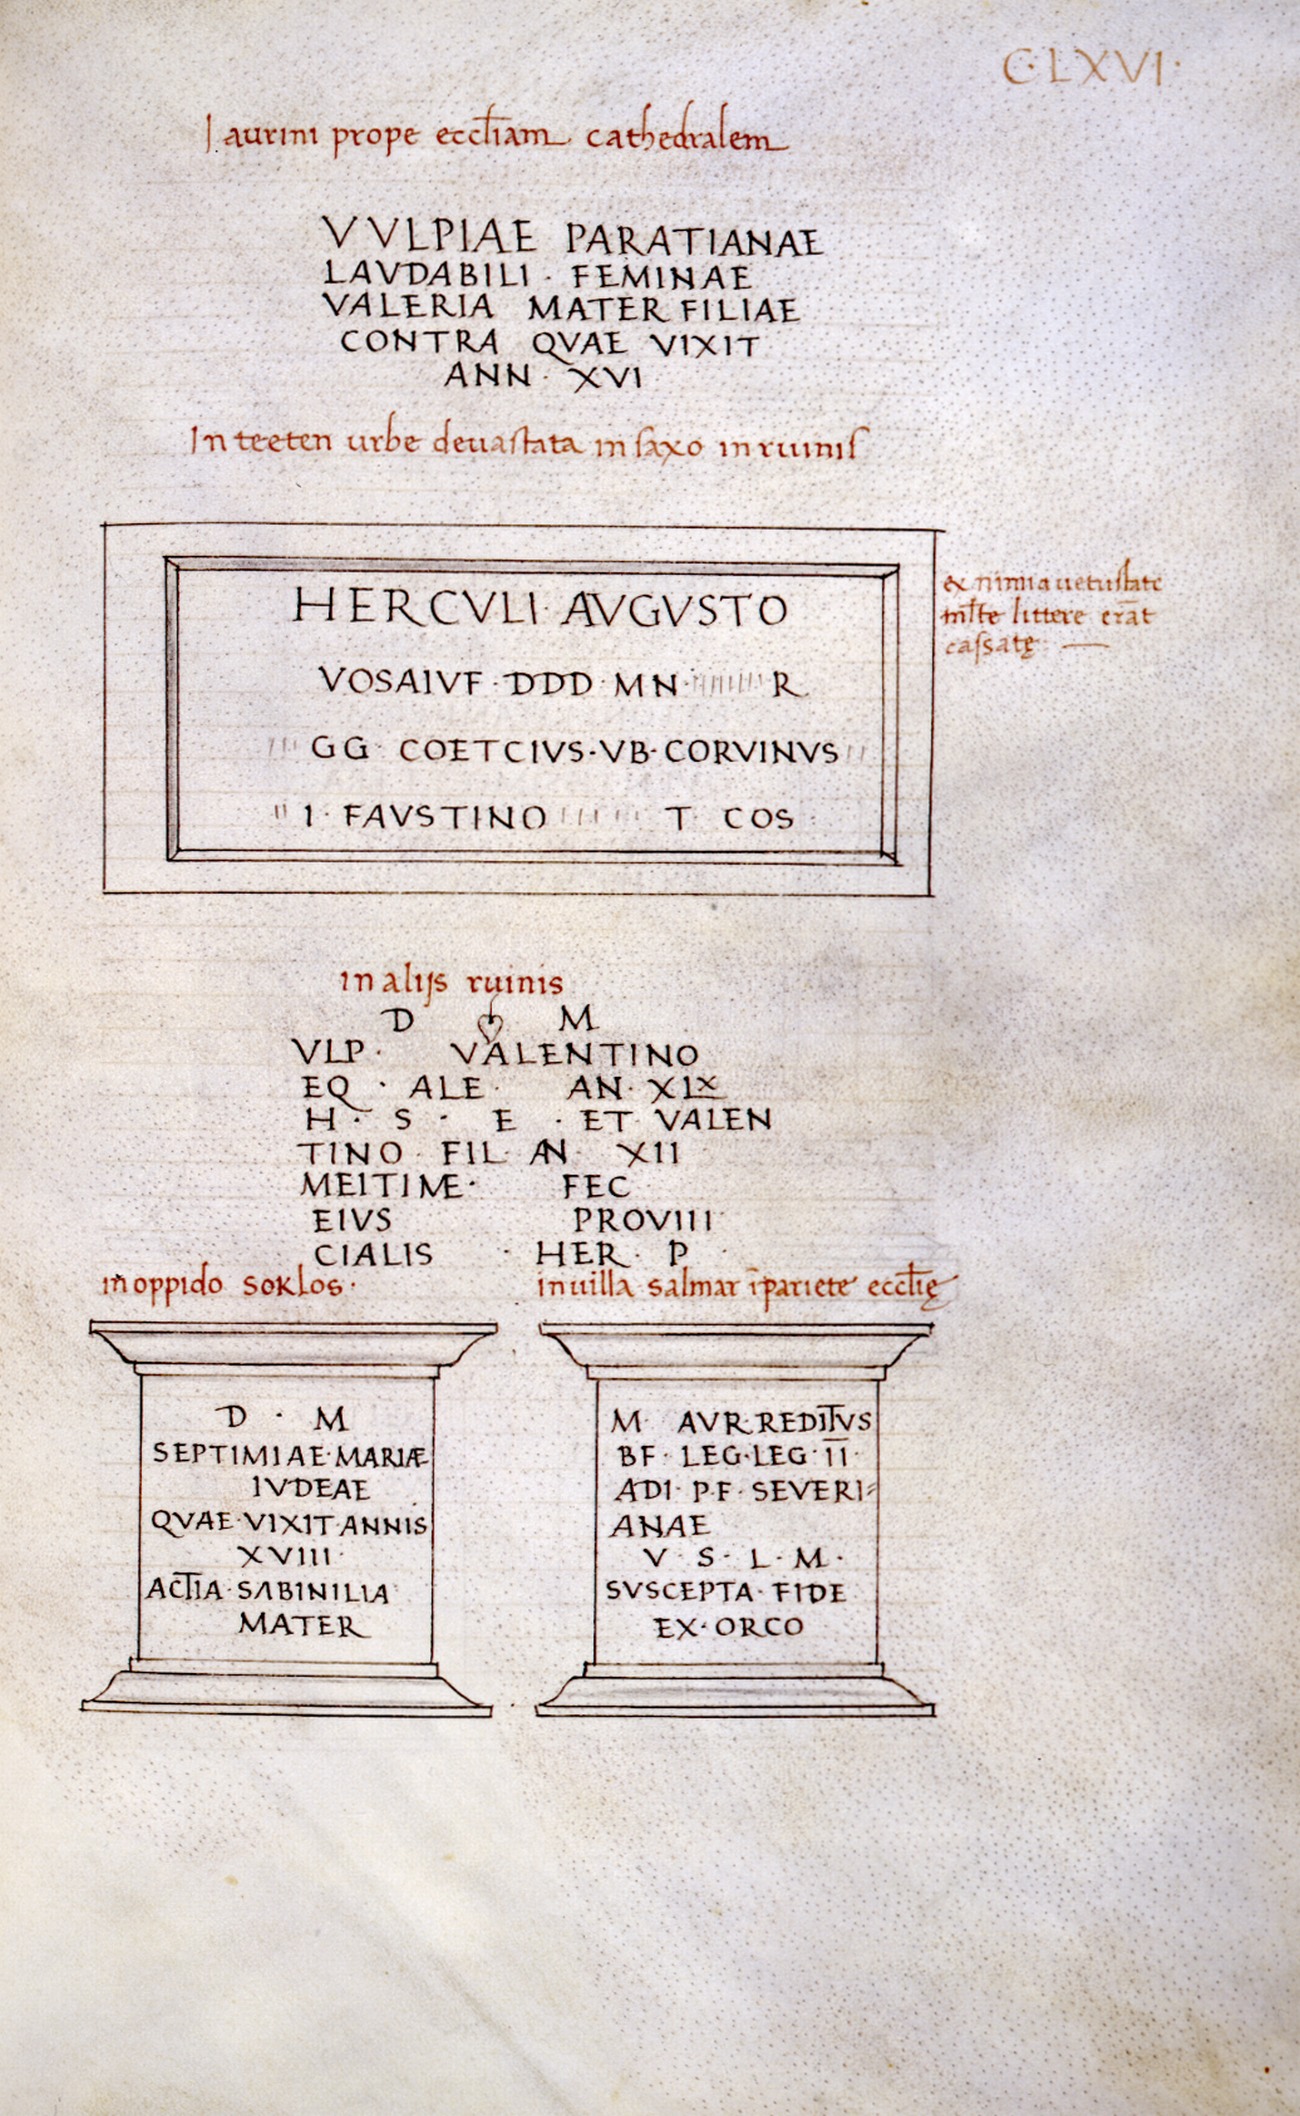 C·LXVI·
Iaurini prope eccl̄iam cathedralem
VVLPIAE PARATIANAE
LAVDABILI · FEMINAE
VALERIA MATER FILIAE
CONTRA QVAE VIXIT
ANN · XVI
In teeten urbe deuastata in saxo in ruinis
HERCVLI · AVGVSTO
ex nimia uetustate
ml̄te littere erāt
cassatę
VOSAIVF · DDD · MN · R
GG COETCIVS · VB · CORVINVS
I · FAVSTINO T COS
in alijs ruinis
D M
VLP · VALENTINO
EQ · ALE · AN · XLX
H · S · E · ET VALEN
TINO FIL AN XII
MEITIME · FEC
EIVS PROVIII
CIALIS · HER · P ·
in oppido soklos ·
in uilla salmar ī pariete eccl̄ię
D · M
SEPTIMIAE · MARIÆ
IVDEAE
QVAE · VIXIT · ANNIS
XVIII ·
ACTIA · SABINILIA
MATER
M AVR · REDITVS
BF · LEG · LEG · I̅I̅ ·
ADI · P · F · SEVERI-
ANAE
V · S · L · M ·
SVSCEPTA · FIDE
EX · ORCO